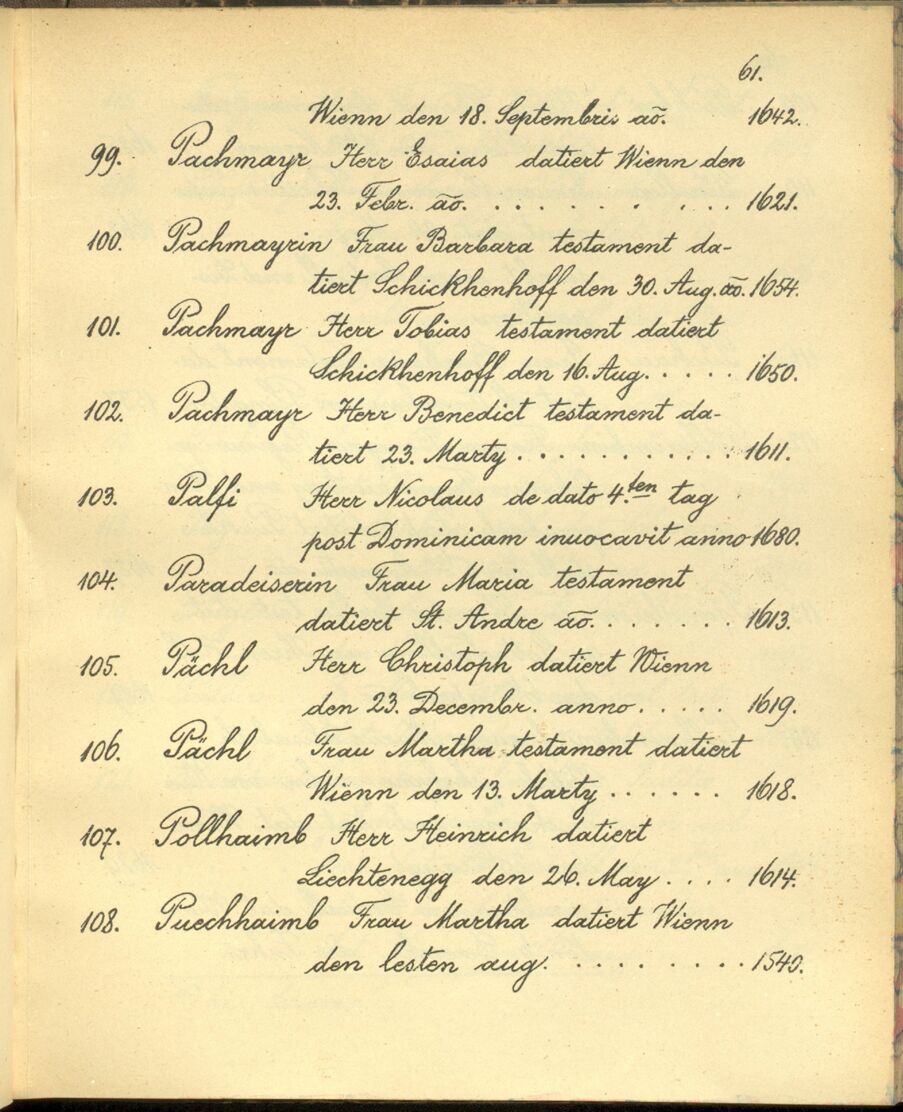 61.
Wienn den 18. Septembris ao̅. 1642.
99. Pachmayr Herr Esaias datiert Wienn den
23. Febr. ao̅. . . . . . . . . . . 1621.
100. Pachmayrin Frau Barbara testament da-
tiert Schickhenhoff den 30. Aug. ao̅. 1654.
101. Pachmayr Herr Tobias testament datiert
Schickhenhoff den 16. Aug. . . . . . 1650.
102. Pachmayr Herr Benedict testament da-
tiert 23. Marty . . . . . . . . . . . 1611.
103. Palfi Herr Nicolaus de dato 4.ten tag
post Dominicam inuocavit anno 1680.
104. Paradeiserin Frau Maria testament
datiert St. Andre ao̅. . . . . . . . 1613.
105. Pächl Herr Christoph datiert Wienn
den 23. Decembr. anno . . . . . 1619.
106. Pächl Frau Martha testament datiert
Wienn den 13. Marty . . . . . . 1618.
107. Pollhaimb Herr Heinrich datiert
Liechtenegg den 26. May . . . . 1614.
108. Puechhaimb Frau Martha datiert Wienn
den lesten aug. . . . . . . . . . 1540.